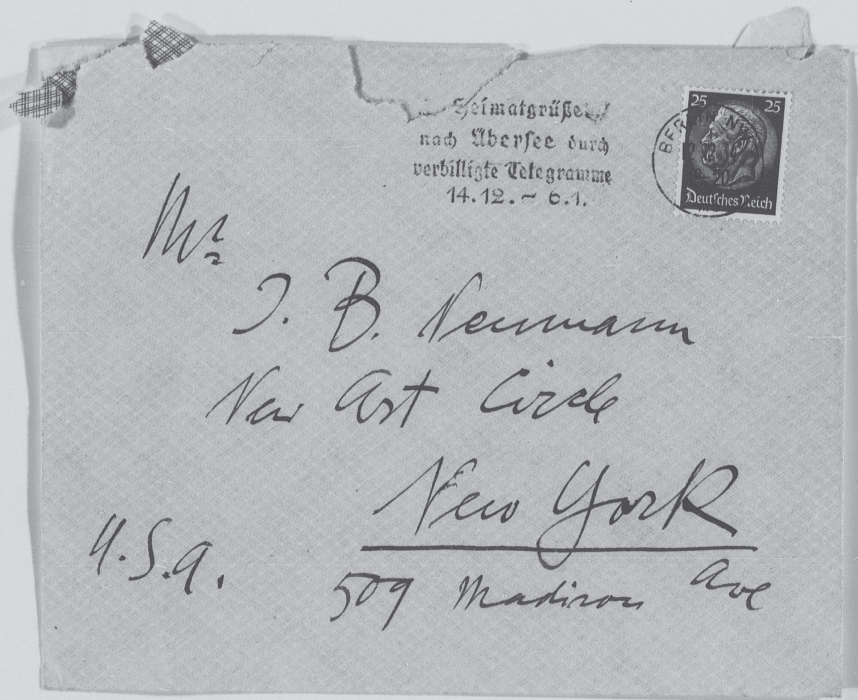 Heimatgrüße
nach Übersee durch
verbilligte Telegramme
14.12.-6.1.
25 25
BERLIN NW
Deutsches Reich
Mr
J. B. Neumann
New Art Circle
New York
U.S.A.
509 Madison Ave